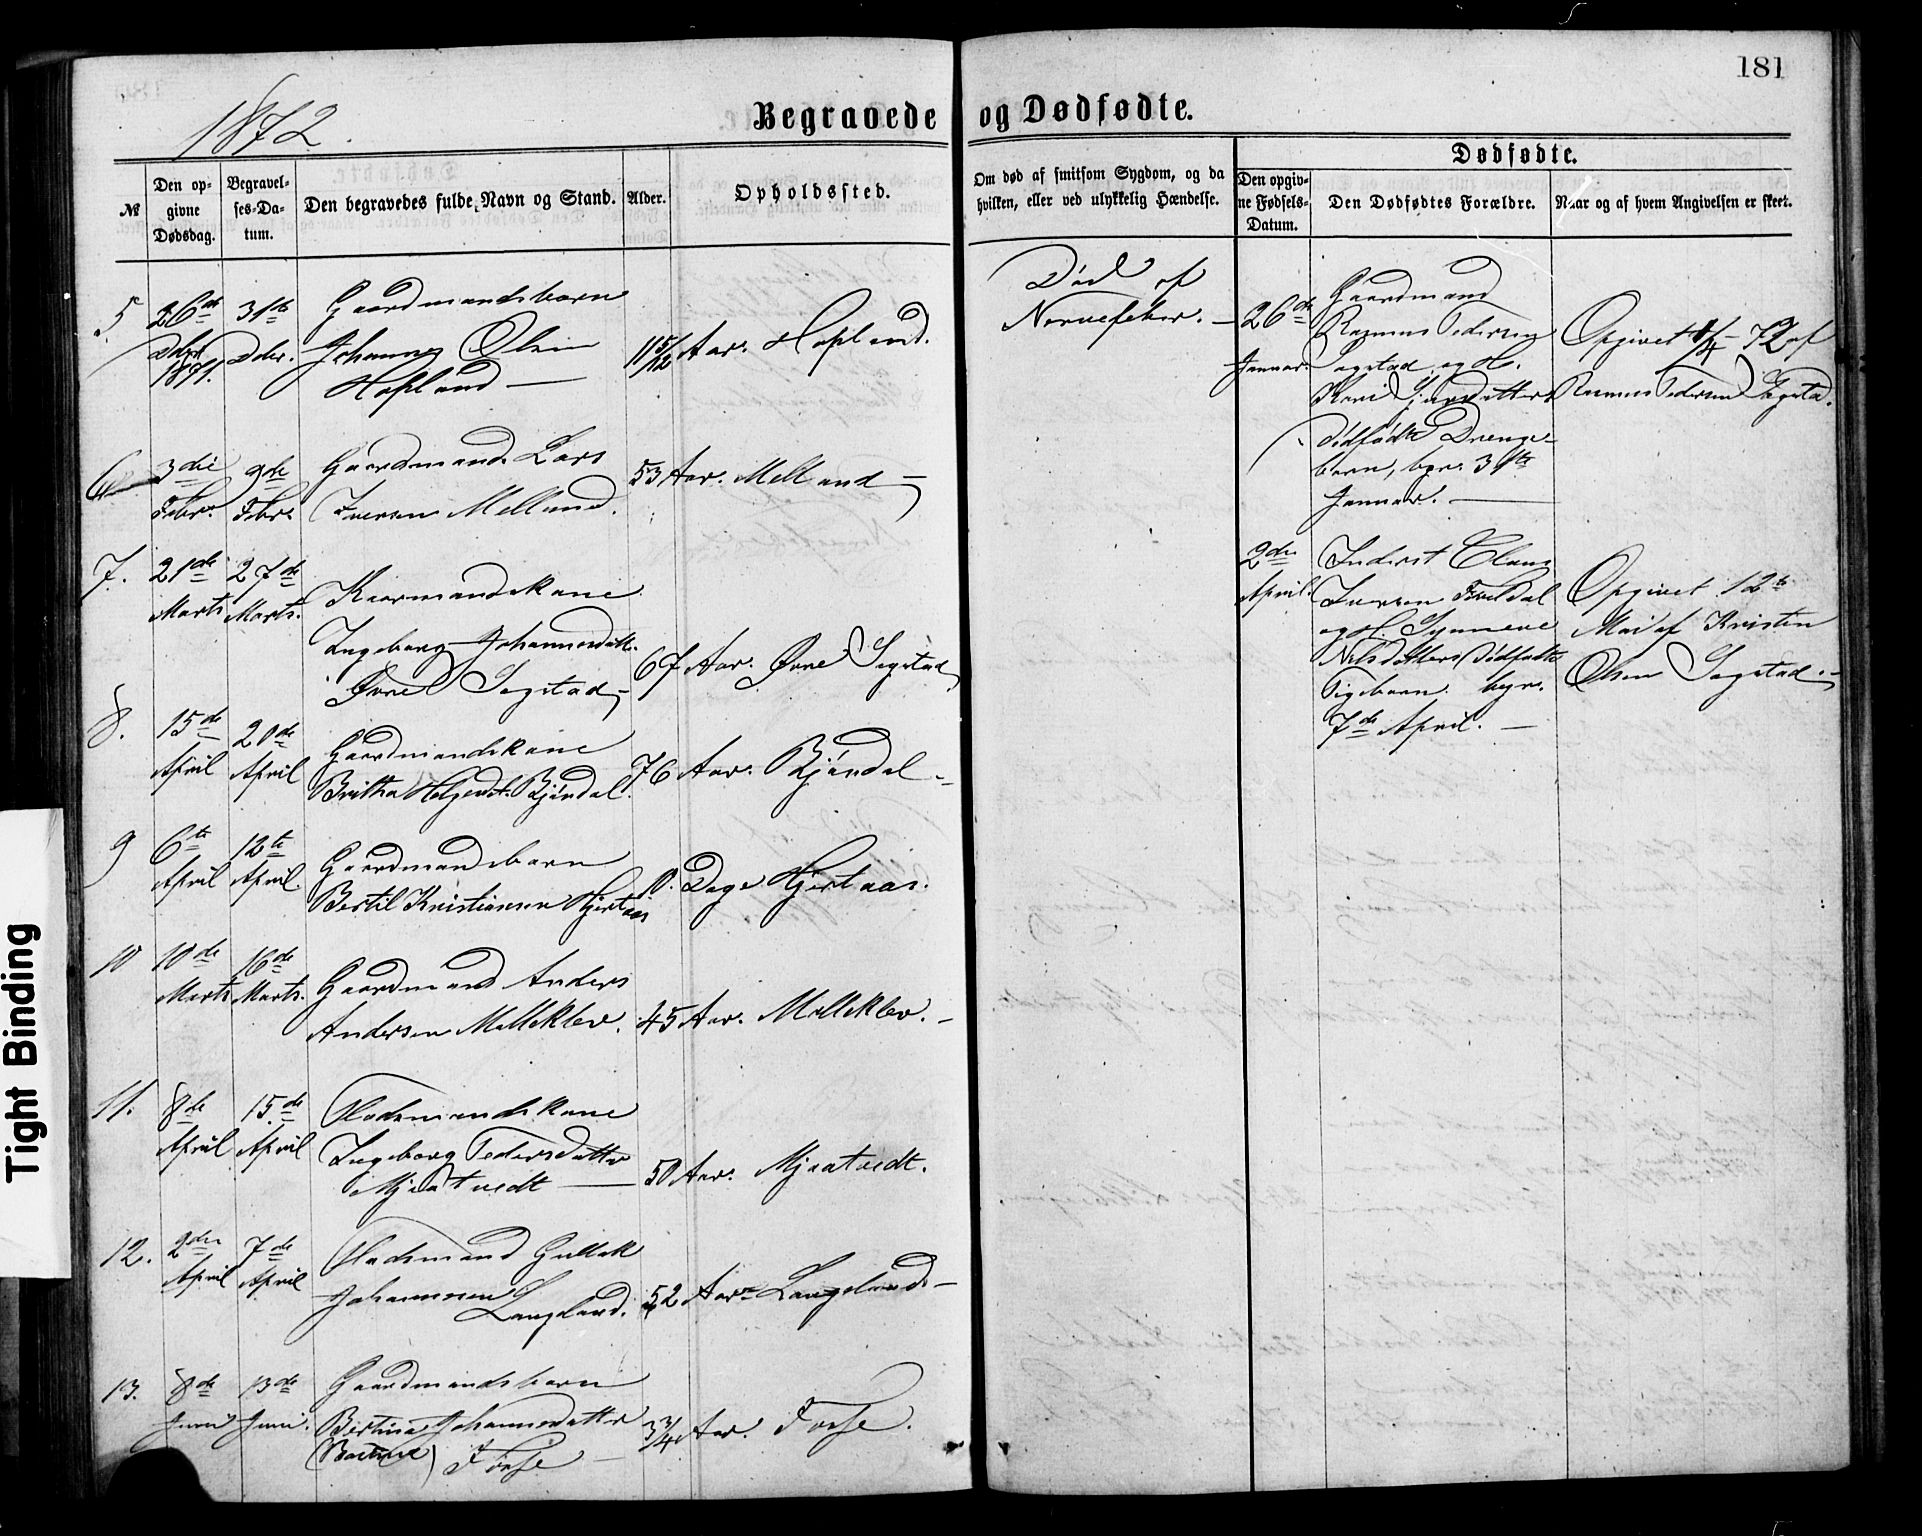 181
1872.
Begravede og Dødfødte.
№
Den op-
givne
Dødsdag.
Begravel-
ses-Da-
tum.
Den begravedes fulde Navn og Stand.
Alder.
Opholdssted.
Om død af smitsom Sygdom, og da
hvilken, eller ved ulykkelig Hændelse.
Dødfødte.
Den opgiv-
ne Fødsels-
Datum.
Den Dødfødtes Forældre.
Naar og af hvem Angivelsen er skeet.
5
26de
1871.
31te
Dcbr.
Gaardmandsbarn
Johannes Olsen
Hopland
11 5/12 Aar.
Hopland.
Død af
Nervefeber.
6
3die
Febr.
9de
Febr.
Gaardmand Lars
Iversen Melland.
53 Aar.
Melland
7.
21de
Marts
27de
Marts.
Kaarmandskone
Ingeborg Johannesdatt.
Øvre Sagstad
67 Aar.
Øvre Sagstad
8.
15de
April
20de
April
Gaardmandskone
Britha Helgesd. Bjøndal.
76 Aar.
Bjøndal
9
6te
April
12te
April.
Gaardmandsbarn
Bertil Kristiansen Hjertaas
10. Dage
Hjertaas.
10
10de
Marts
16de
Marts.
Gaardmand Anders
Andersen Melleklev.
45 Aar.
Melleklev.
11.
8de
April
15de
April
Pladsmandskone
Ingeborg Pedersdatter
Mjaatvedt
50 Aar.
Mjaatvedt.
12.
2den
April
7de
April
Pladsmand Gullak
Johannesen
Langeland.
52 Aar
Langeland
13.
8de
Juni
13de
Juni.
Gaardmandsbarn
Bertina Johannesdatter
Fosse
3 3/4 Aar.
Fosse.
26de
Januar.
Gaardmand
Rasmus Pedersen
Sagstad og H.
Kari
dødfødte Drenge-
barn, begr. 31te
Januar.
Opgivet 1/4 - 72 af
Rasmus Pedersen Sagstad.
2den
April.
Inderst Claus
Iversen
og H. Synneve
Nilsdatters dødfødte
Pigebarn. begr.
7de April.
Opgivet 12te
Mai af Kristen
Olsen Sagstad.
Tight Binding